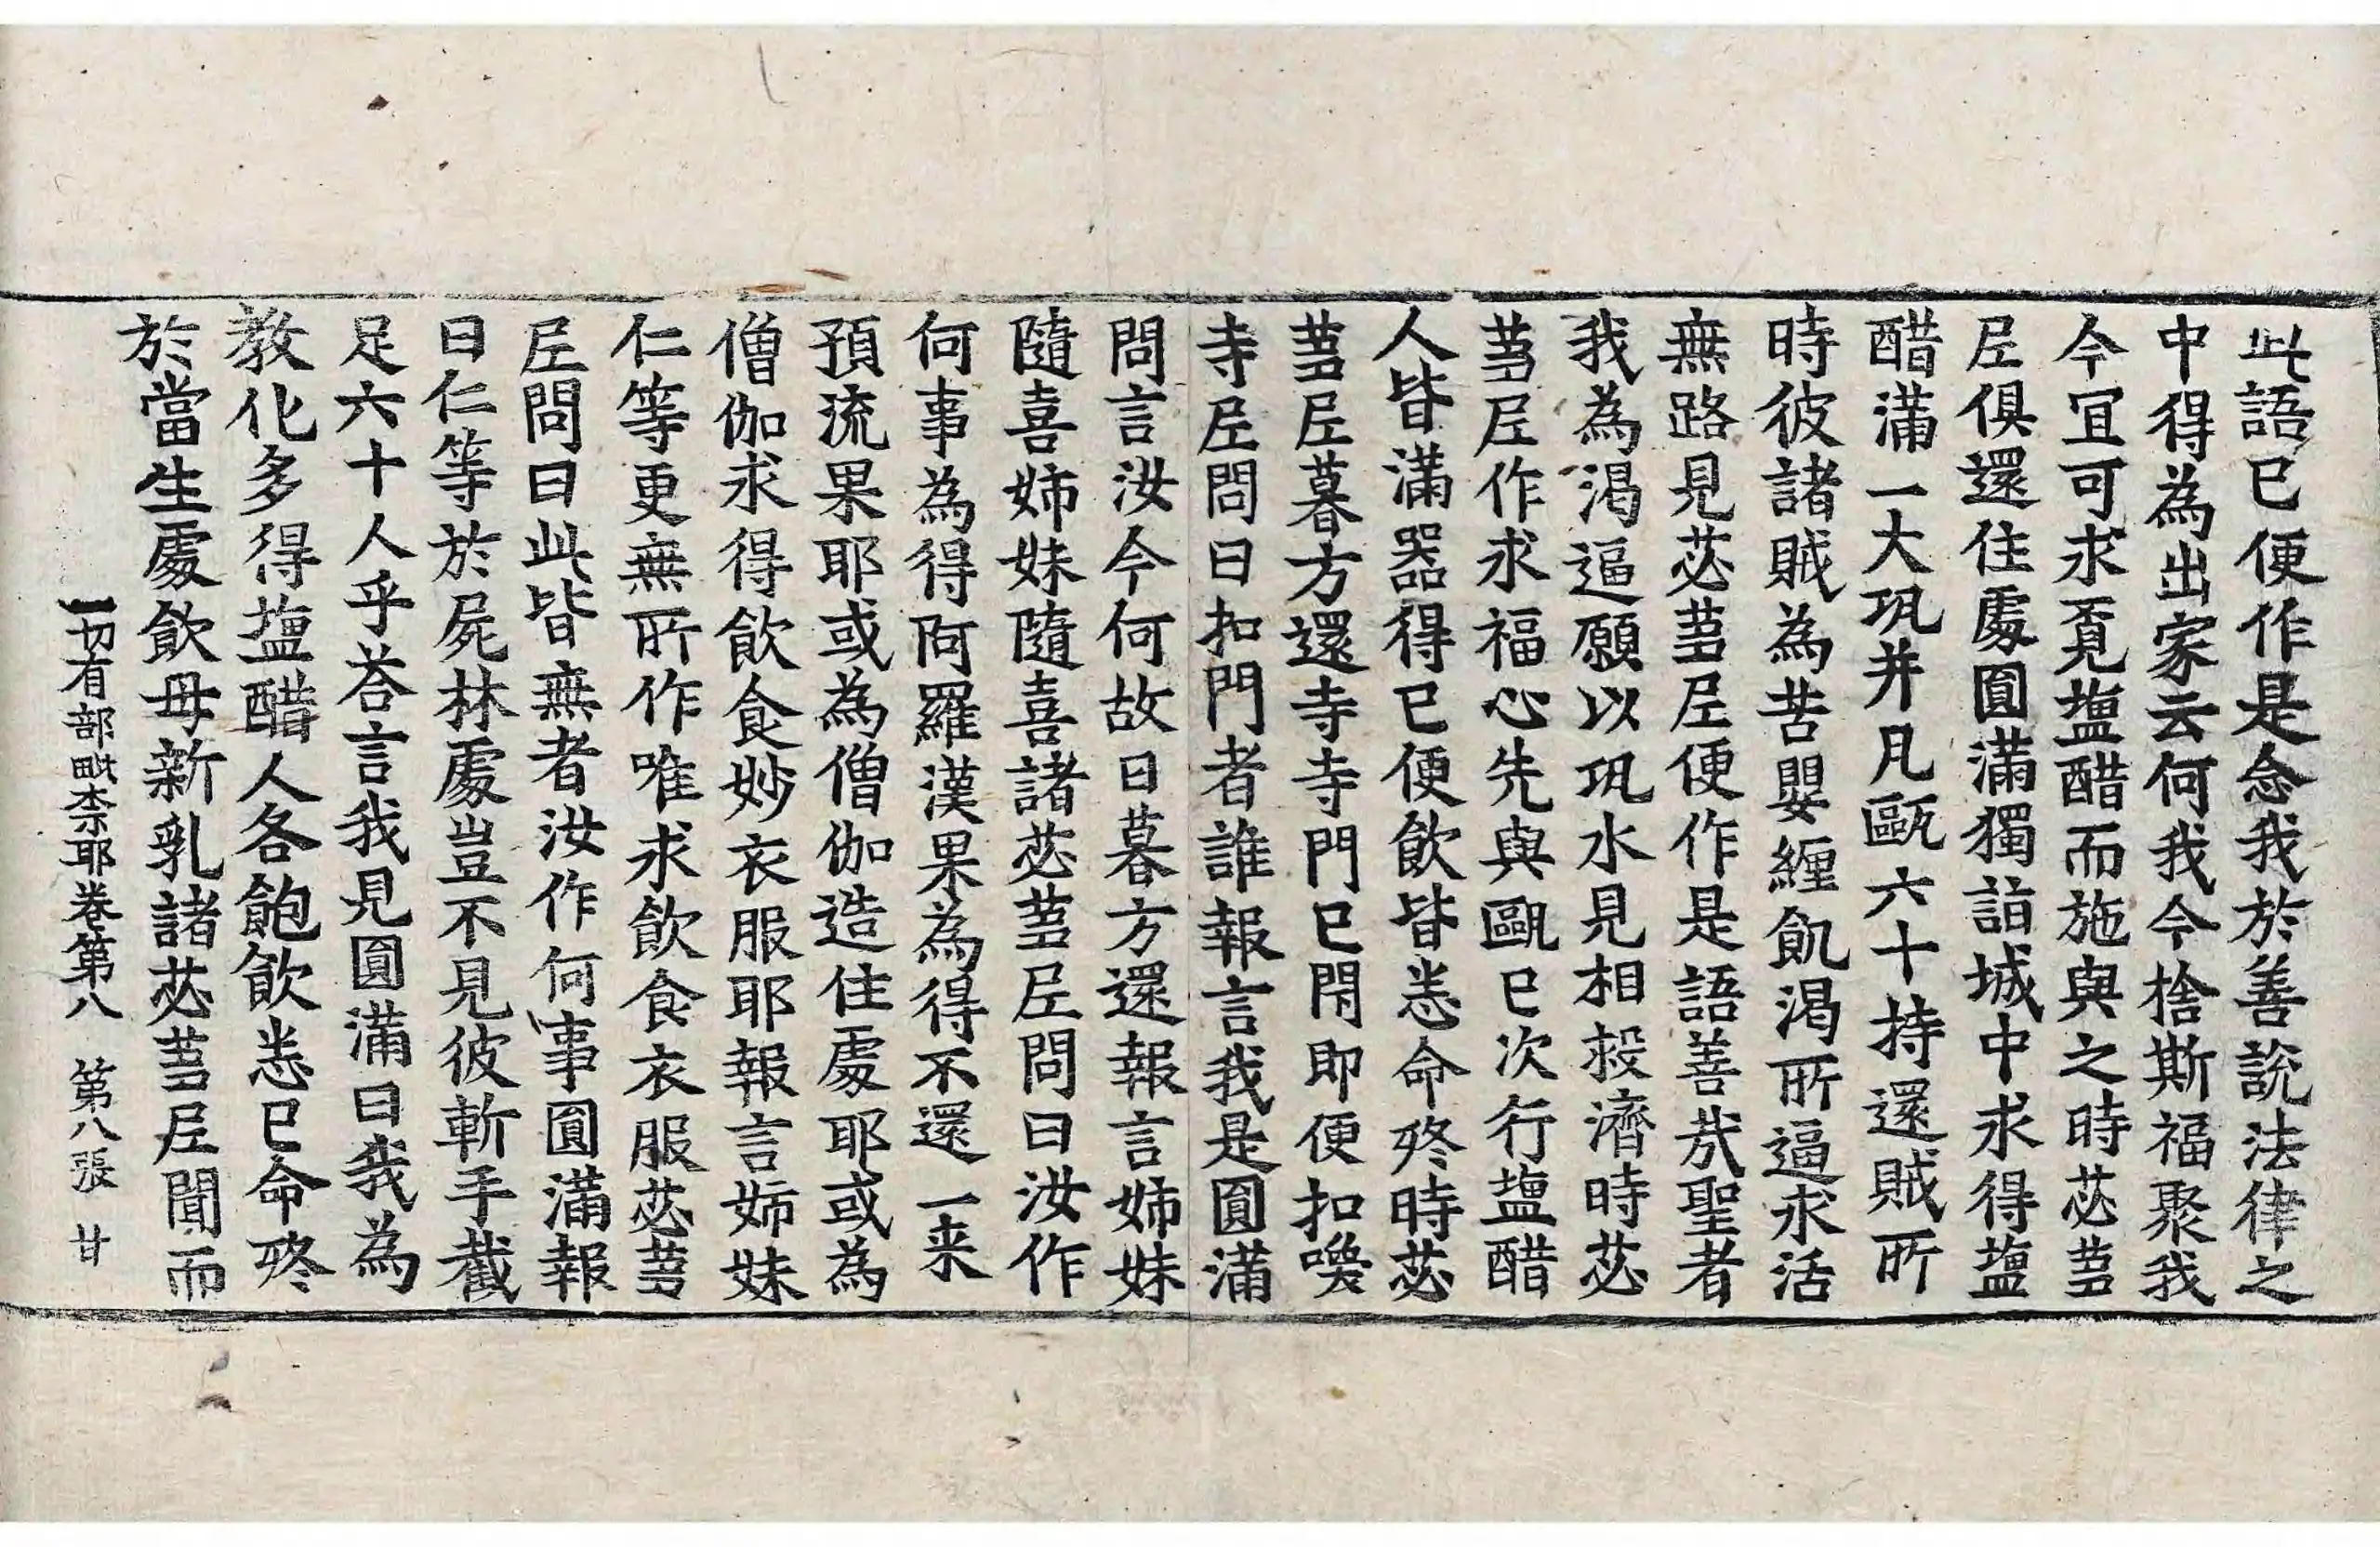 此語已便作是念我於善說法律之
中得為出家云何我今捨斯福聚我
今宜可求覓塩醋而施與之時苾蒭
尼俱還住處圓滿獨詣城中求得塩
醋滿一大瓨并凡甌六十持還賊所
時彼諸賊為苦嬰纏飢渴所逼求活
無路見苾蒭尼便作是語善哉聖者
我為渴逼願以瓨水見相救濟時苾
蒭尼作求福心先與甌已次行塩醋
人皆滿器得已便飲皆悉命終時苾
蒭尼暮方還寺寺門已閇即便扣喚
寺尼問曰扣門者誰報言我是圓滿
問言汝今何故日暮方還報言姉妹
隨喜姉妹隨喜諸苾蒭尼問曰汝作
何事為得阿羅漢果為得不還一来
預流果耶或為僧伽造住處耶或為
僧伽求得飲食妙衣服耶報言姉妹
仁等更無所作唯求飲食衣服苾蒭
尼問曰此皆無者汝作何事圓滿報
曰仁等於屍林處豈不見彼斬手截
足六十人乎荅言我見圓滿曰我為
教化多得塩醋人各飽飲悉已命終
於當生處飲母新乳諸苾蒭尼聞而
一切有部毗柰耶卷第八 第八張 甘